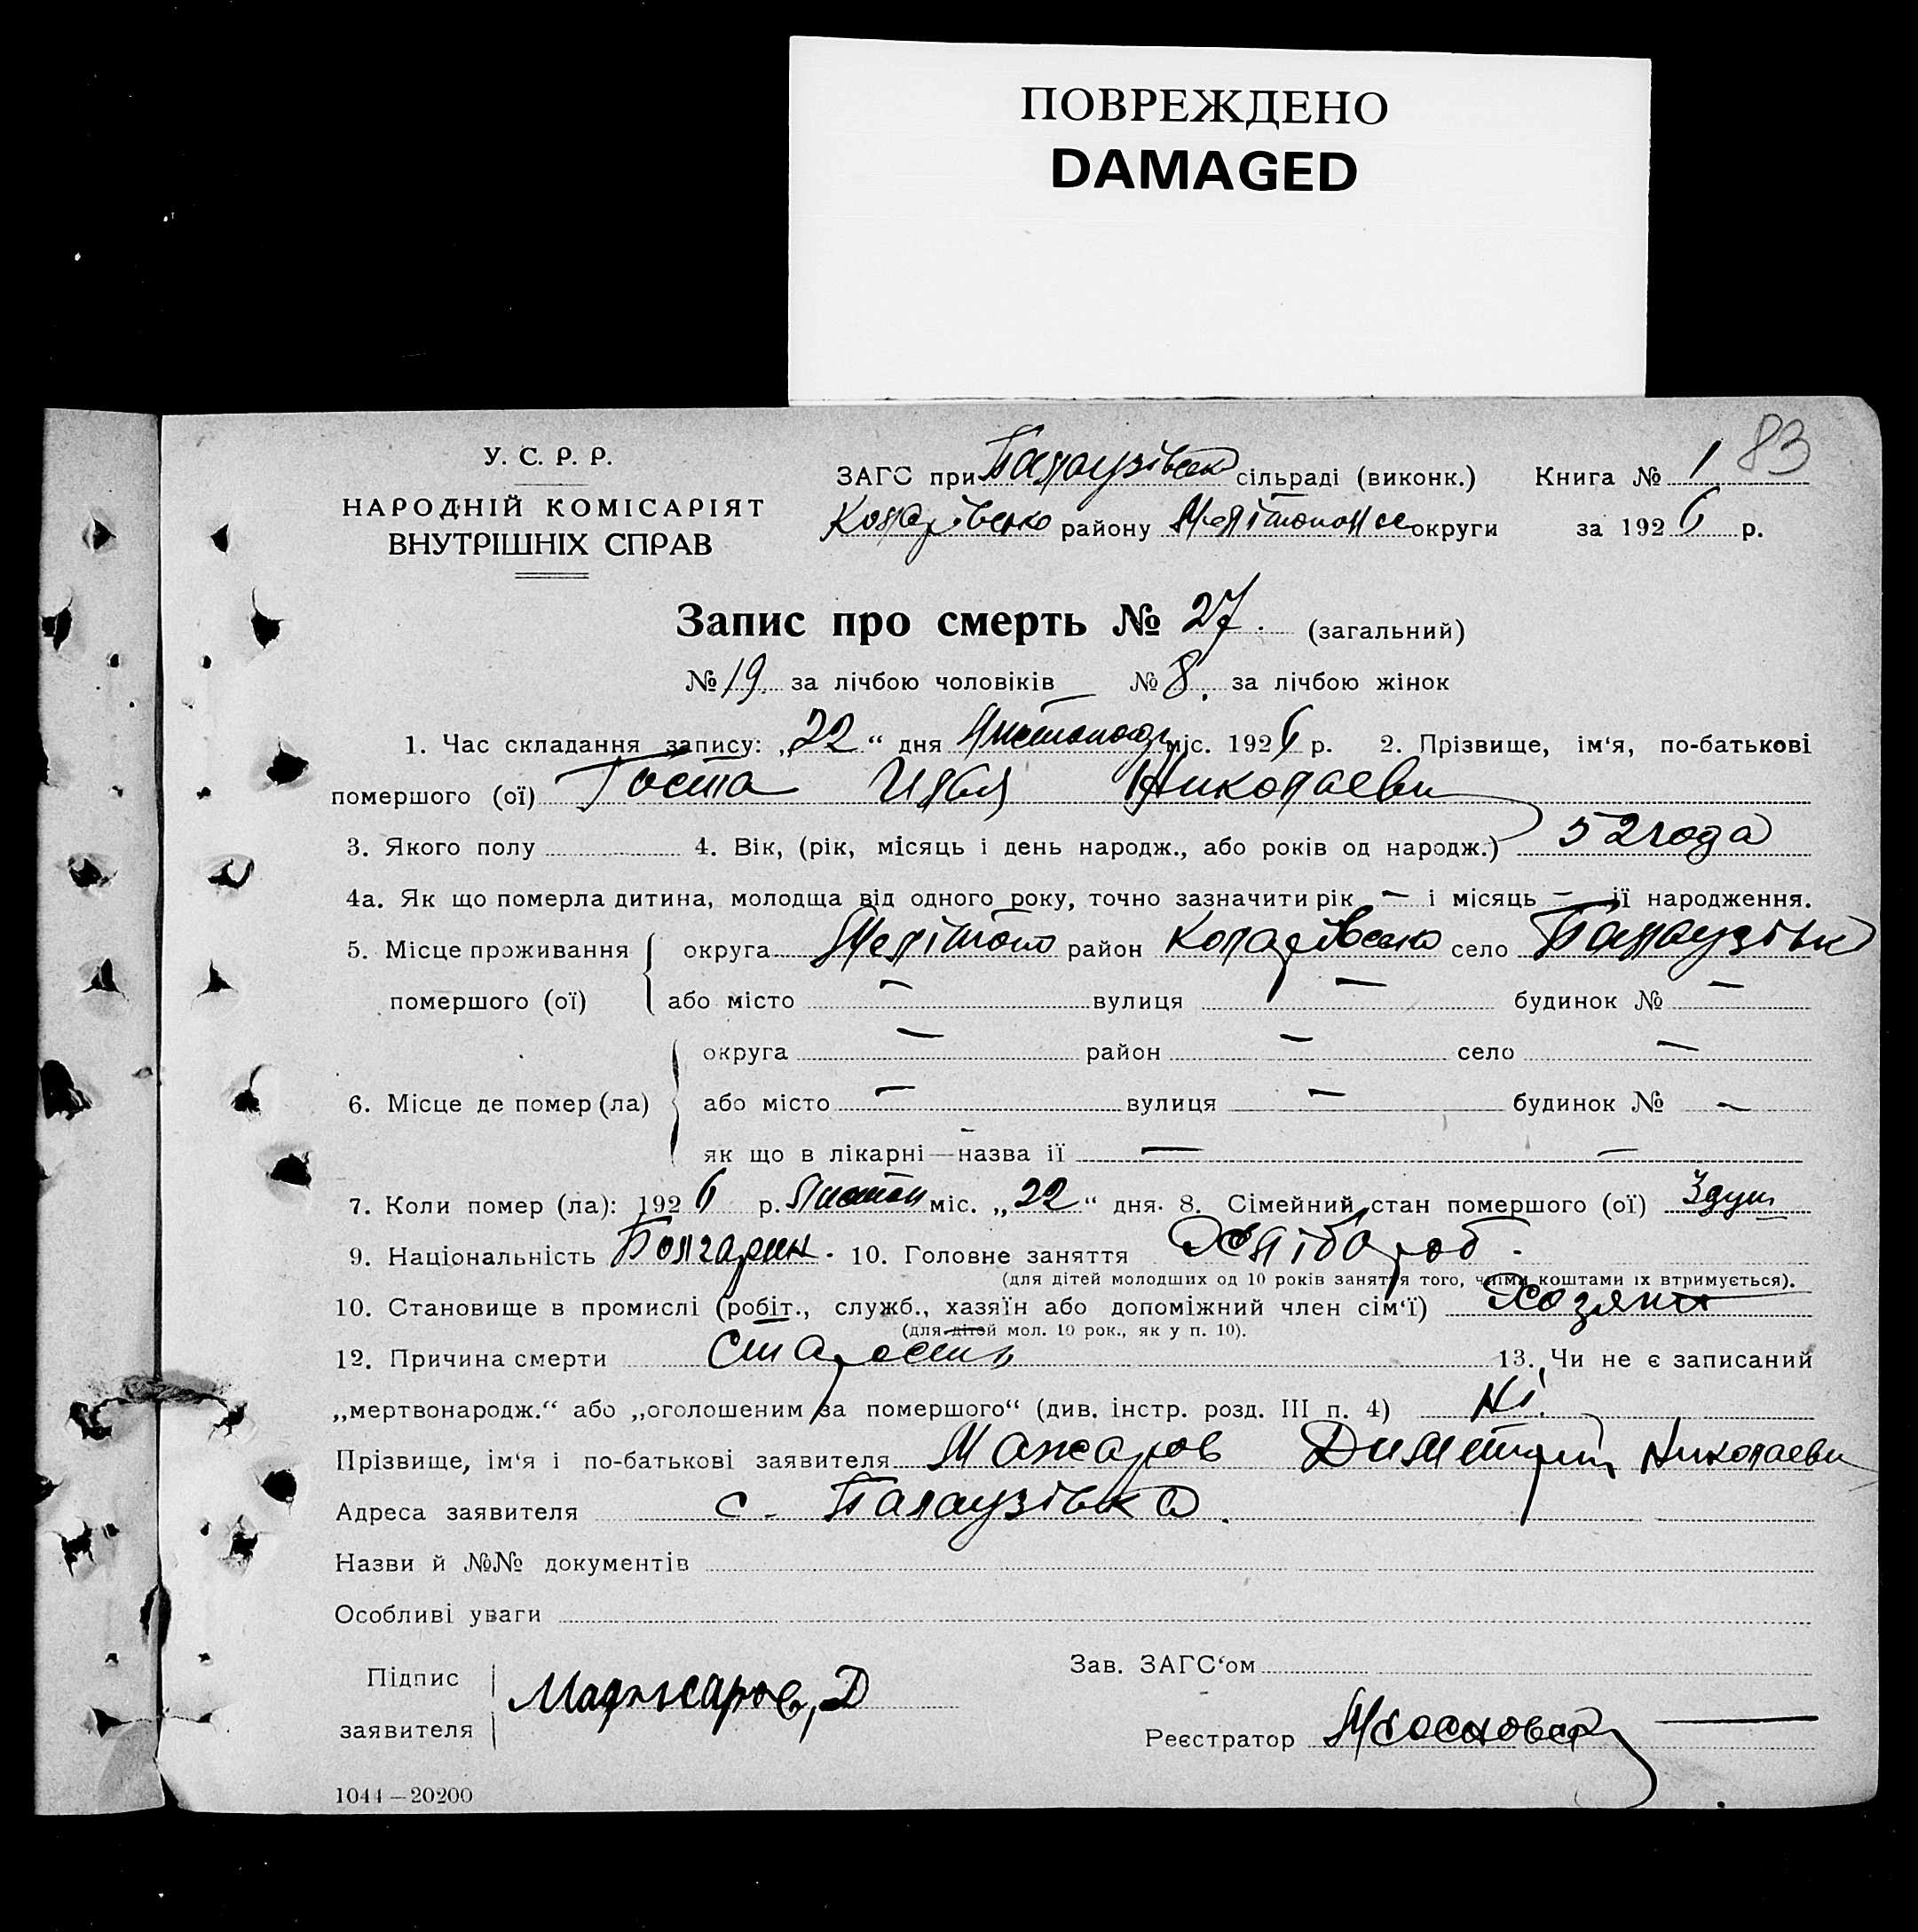 ПОВРЕЖДЕНО
DAMAGED
83
У. С. Р. Р.
НАРОДНІЙ КОМІСАРІЯТ
ВНУТРІШНІХ СПРАВ
ЗАГС при Палаузівськ сільраді (виконк.) Книга № 1
Коларівсько району Мелітопольсь округи за 1926 р.
Запис про смерть № 27. (загальний)
№ 19. за лічбою чоловіків № 8. за лічбою жінок
1. Час складання запису: „22“ дня Листопад міс. 1926 р. 2. Прізвище, ім‘я, по-батькові
помершого (ої) Госта Илья Николаеви
3. Якого полу 4. Вік, (рік, місяць і день народж., або років од народж.) 52 года
4а. Як що померла дитина, молодща від одного року, точно зазначити рік — і місяць — її народження.
5. Місце проживання округа Мелітоп район Коларівсько село Палаузівк
помершого (ої) або місто — вулиця — будинок № —
округа — район — село —
6. Місце де помер (ла) або місто — вулиця — будинок № —
як що в лікарні — назва ії — —
7. Коли помер (ла): 1926 р. Листоп міс. „22“ дня. 8. Сімейний стан помершого (ої)
9. Національність Болгарин. 10. Головне заняття Хлібороб.
(для дітей молодших од 10 років заняття того, чиїми коштами їх втримується).
10. Становище в промислі (робіт., служб., хазяїн або допоміжний член сім‘ї) Хозяин
(для дітей мол. 10 рок., як у п. 10).
12. Причина смерти Старость 13. Чи не є записаний
„мертвонародж.“ або „оголошеним за помершого“ (див. інстр. розд. III п. 4) Ні.
Прізвище, ім‘я і по-батькові заявителя Мажаров Диметрий Николаеви
Адреса заявителя с. Палаузівка.
Назви й №№ документів
Особливі уваги
Підпис
заявителя Маджаров, Д
Зав. ЗАГС‘ом
Реєстратор
1044—20200